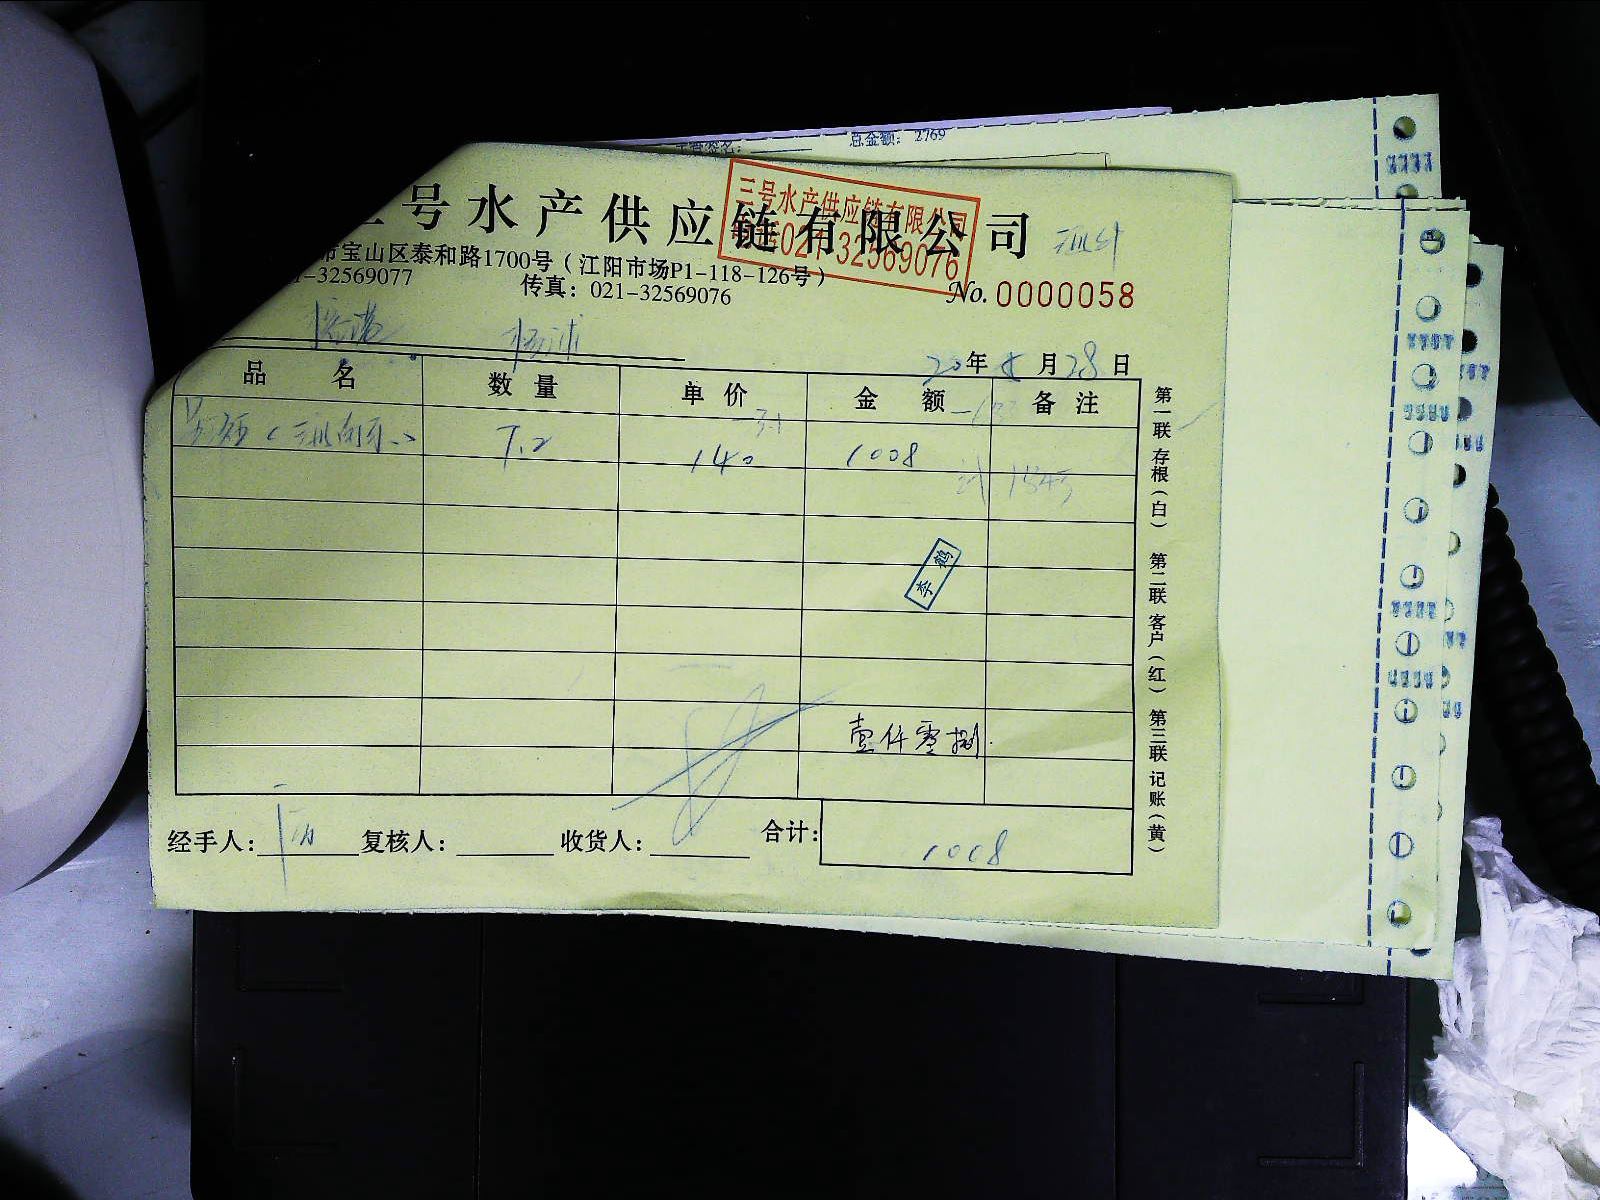 总金额: 2769
三号水产供应链有限公司
三号水产供应链有限公司
021-32569076
市宝山区泰和路1700号（江阳市场P1-118-126号）
1-32569077 传真: 021-32569076
No. 0000058
杨浦
20年 月28日
品 名 数 量 单 价 金 额 备 注
7.2 140 1008
李鹤
壹仟零捌
经手人: 复核人: 收货人: 合计: 1008
第一联 存根（白） 第二联 客户（红） 第三联 记账（黄）